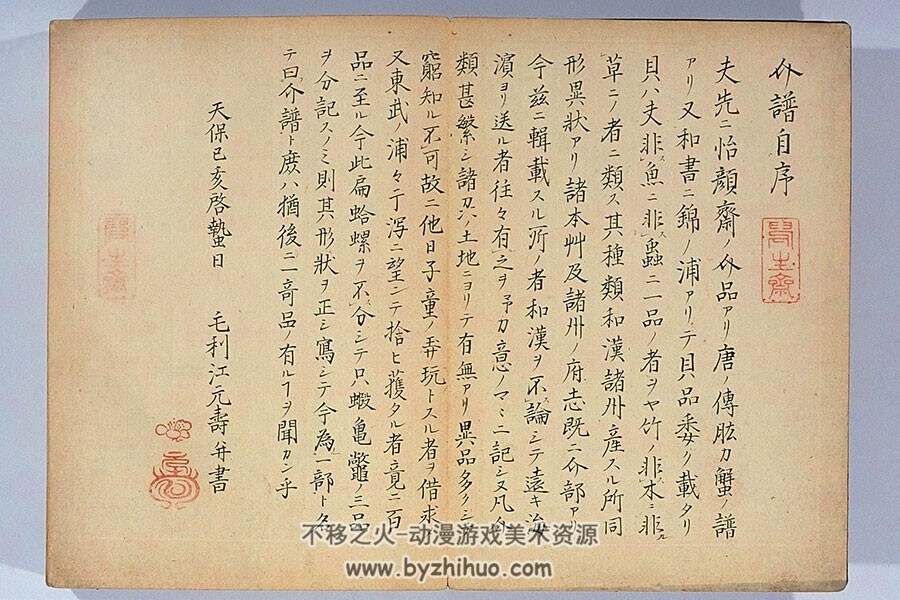 介譜自序
夫先ニ怡顔齋ノ介品アリ唐ノ傳肱カ蟹ノ譜
アリ又和書ニ錦ノ浦アリテ貝品委ク載タリ
貝ハ夫非魚ニ非蟲ニ一品ノ者ヲヤ竹ノ非木ニ非
草ニノ者ニ類ス其種類和漢諸州産スル所同
形異狀アリ諸本艸及諸州ノ府志既ニ介部アリ
今茲ニ輯載スル所ノ者和漢ヲ不論シテ遠キ海
濱ヨリ送ル者往々有之ヲ予カ意ノマヽニ記シ又凡介
類甚繁シ諸刕ノ土地ニヨリテ有無アリ異品多クシテ
窮知ル不可故ニ他日子童ノ弄玩トスル者ヲ借求メ
又東武ノ浦々干潟ニ望シテ拾ヒ獲タル者竟ニ百
品ニ至ル今此扁蛤螺ヲ不分シテ只蝦亀鼈ノ三品
ヲ分記スノミ則其形狀ヲ正シ寫シテ今為一部ト名
テ曰介譜ト庶ハ猶後ニ奇品ノ有ルヿヲ聞カン乎
天保己亥啓蟄日 毛利江元壽并書
不移之火-动漫游戏美术资源
www.byzhihuo.com